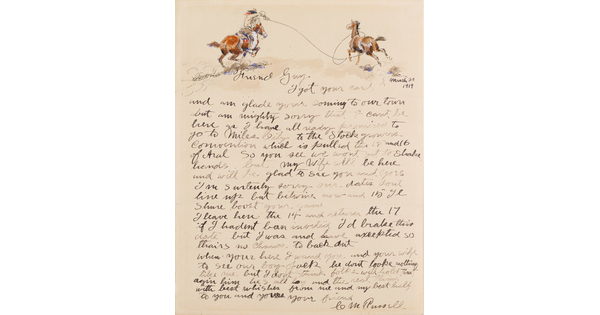 Friend Guy
I got your card
March 20
1919
and am glade your coming to our town
but am mighty sorry that I cant be
here as I have all ready promised to
go to Miles City to the Stock growers
Convention which is pulled the 15 and 16
of Aral So you see we wont get to Shake
hands but my Wife will be here
and will be glad to see you and yors
I'm Surtenly sorry our dates dont
line up but between now and 15 I'l
Shure boost your game
I leave here the 14 and return the 17
if I hadent ban invited I'd brake this
date but I was and have axcepted so
thairs no chance to back out
when your here I want you and your wife
to see our boy Jack he dont looke nothing
like me but I dont think folks will hold that
agin him he's all
with best wishes from me and my best half
to you and yours your friend
C M Russell